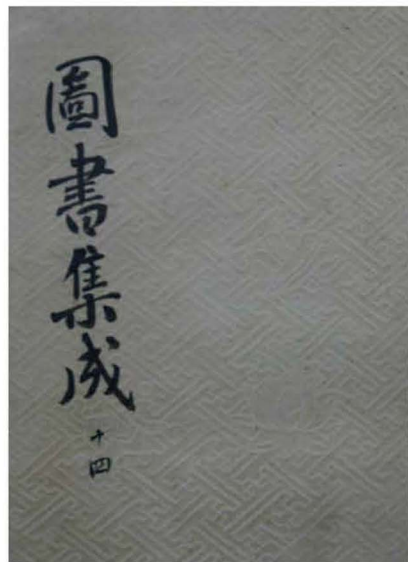 圖書集成
十四